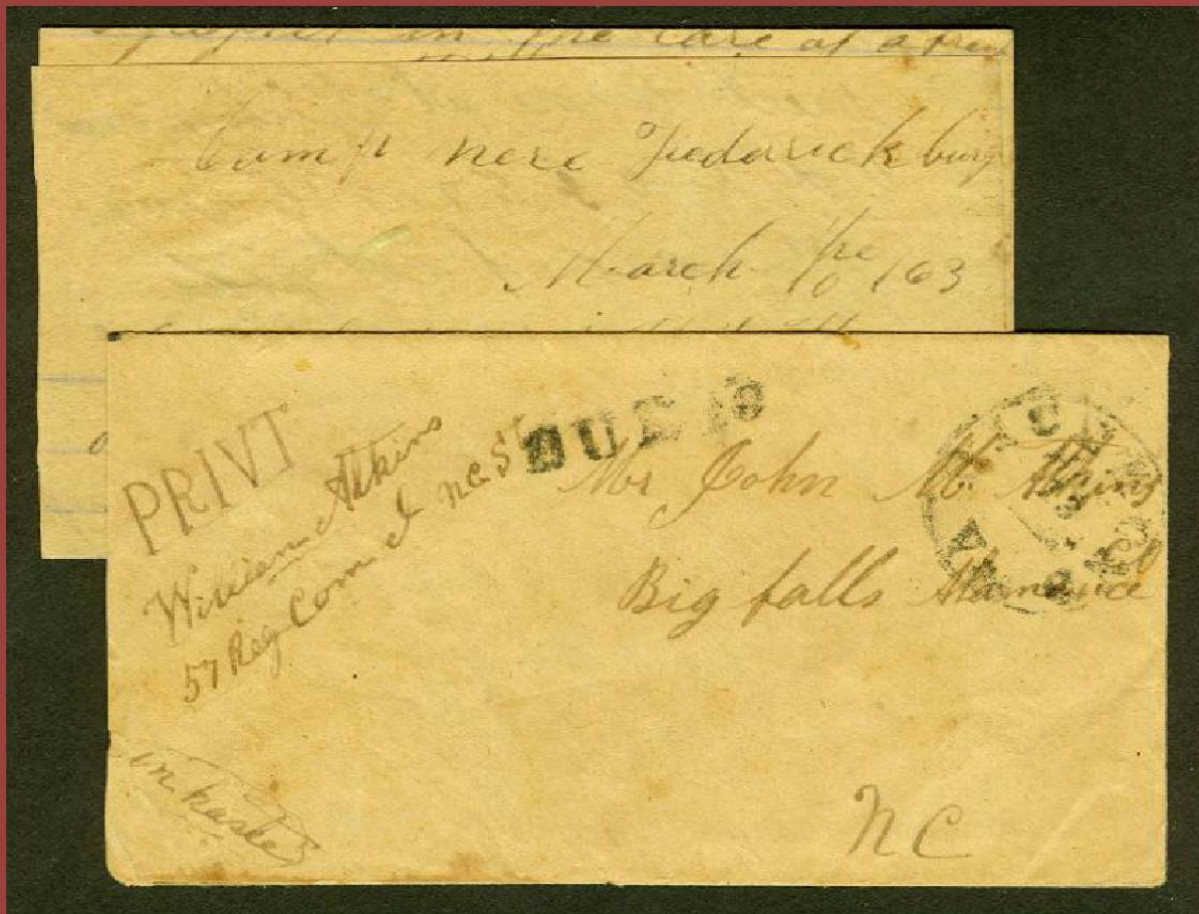 in the care of a
Camp nere Frederickburg
March the 10 /63
PRIVT
William Atkins
57 Reg Com I NC ST
DUE 10
Mr John M Atkins
Big falls Alamance Co
NC
in haste
VA